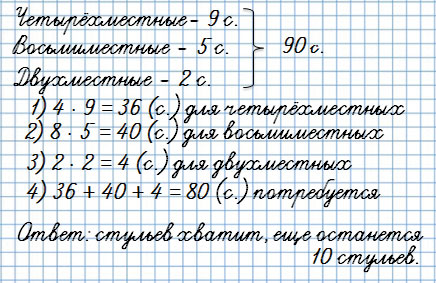 Четырёхместные – 9 с.
Восьмиместные – 5 с. 90 с.
Двухместные – 2 с.
1) 4 · 9 = 36 (с.) для четырёхместных
2) 8 · 5 = 40 (с.) для восьмиместных
3) 2 · 2 = 4 (с.) для двухместных
4) 36 + 40 + 4 = 80 (с.) потребуется
Ответ: стульев хватит, еще останется
10 стульев.